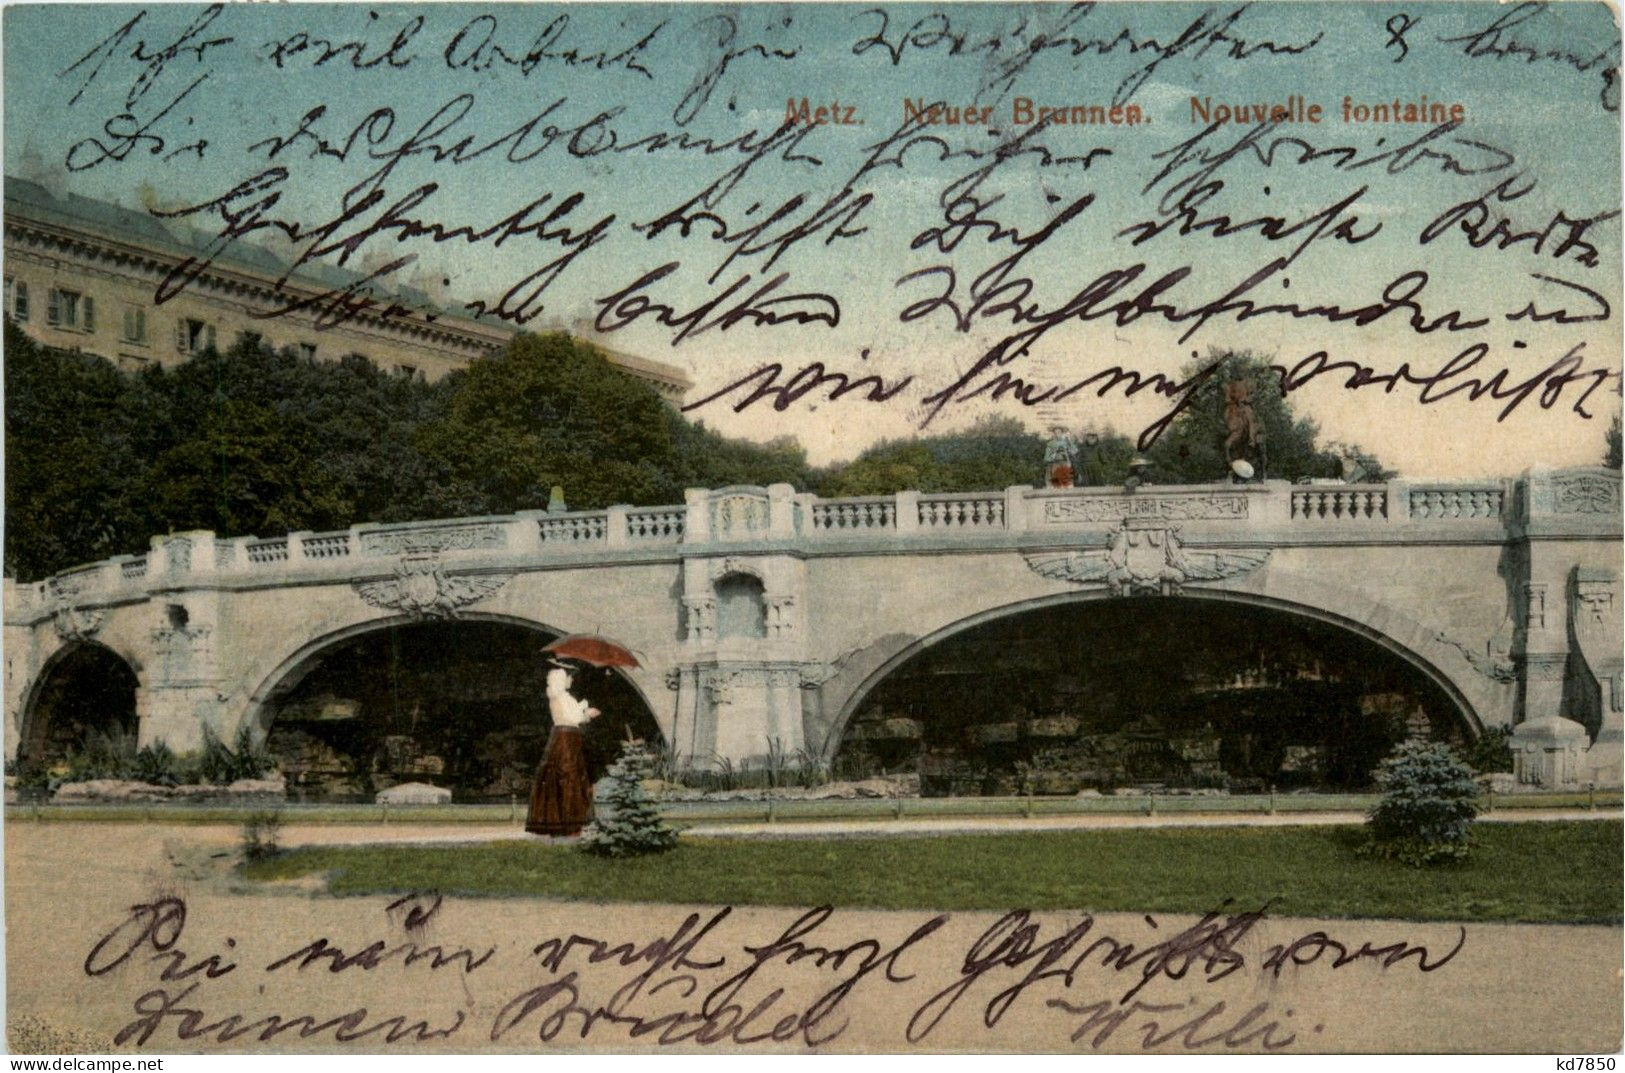 sehr viel Arbeit zu Weihnachten &
Metz. Neuer Brunnen. Nouvelle fontaine
Dir deshalb nicht früher schreiben
Hoffentlich trifft Dich diese Karte
beim besten Wohlbefinden und
wie sie mich verläßt
Sei nun recht herzl gegrüßt von
Deinem Bruder Willi.
kd7850